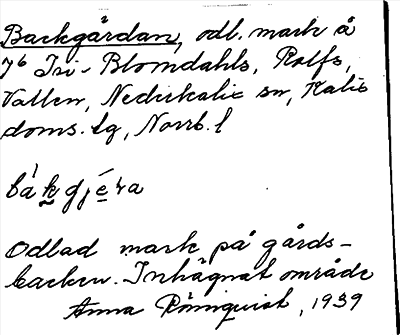 Backgårdan, odl. mark å
7⁶ Isi-Blomdahls, Rolfs,
Vallen, Nederkalix sn, Kalix
doms. lg, Norrb. l
båkgjéra
Odlad mark på gårds-
backen. Inhägnat område
Anna Rönnquist, 1939